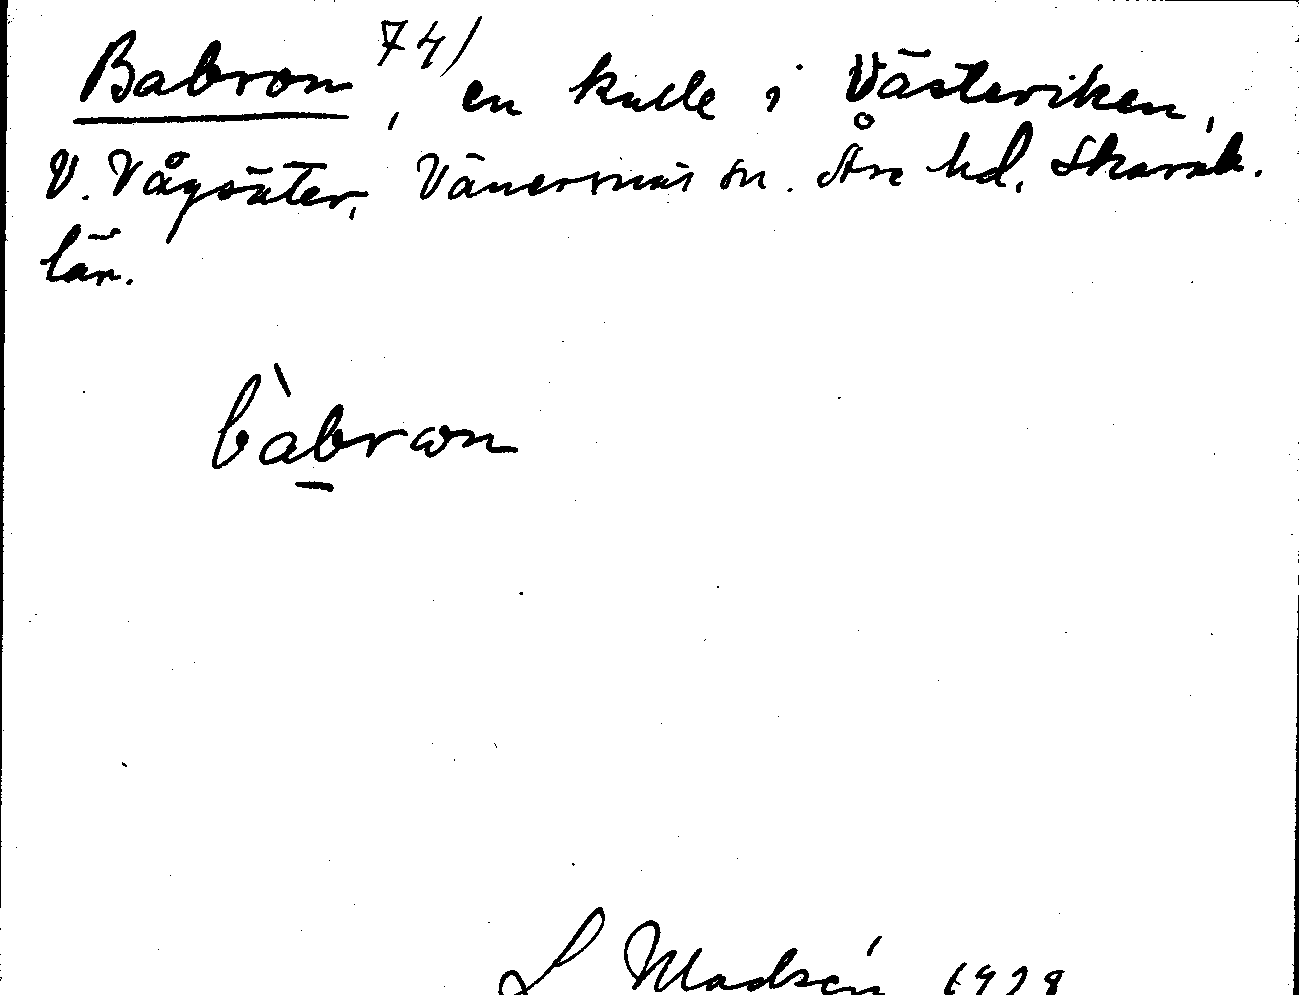 Babron 74), en kulle i Västeriken,
V. Vågsäter, Vänersnäs sn. Åse hd. Skarab.
län.
bàbrωn
L Madsén 1928